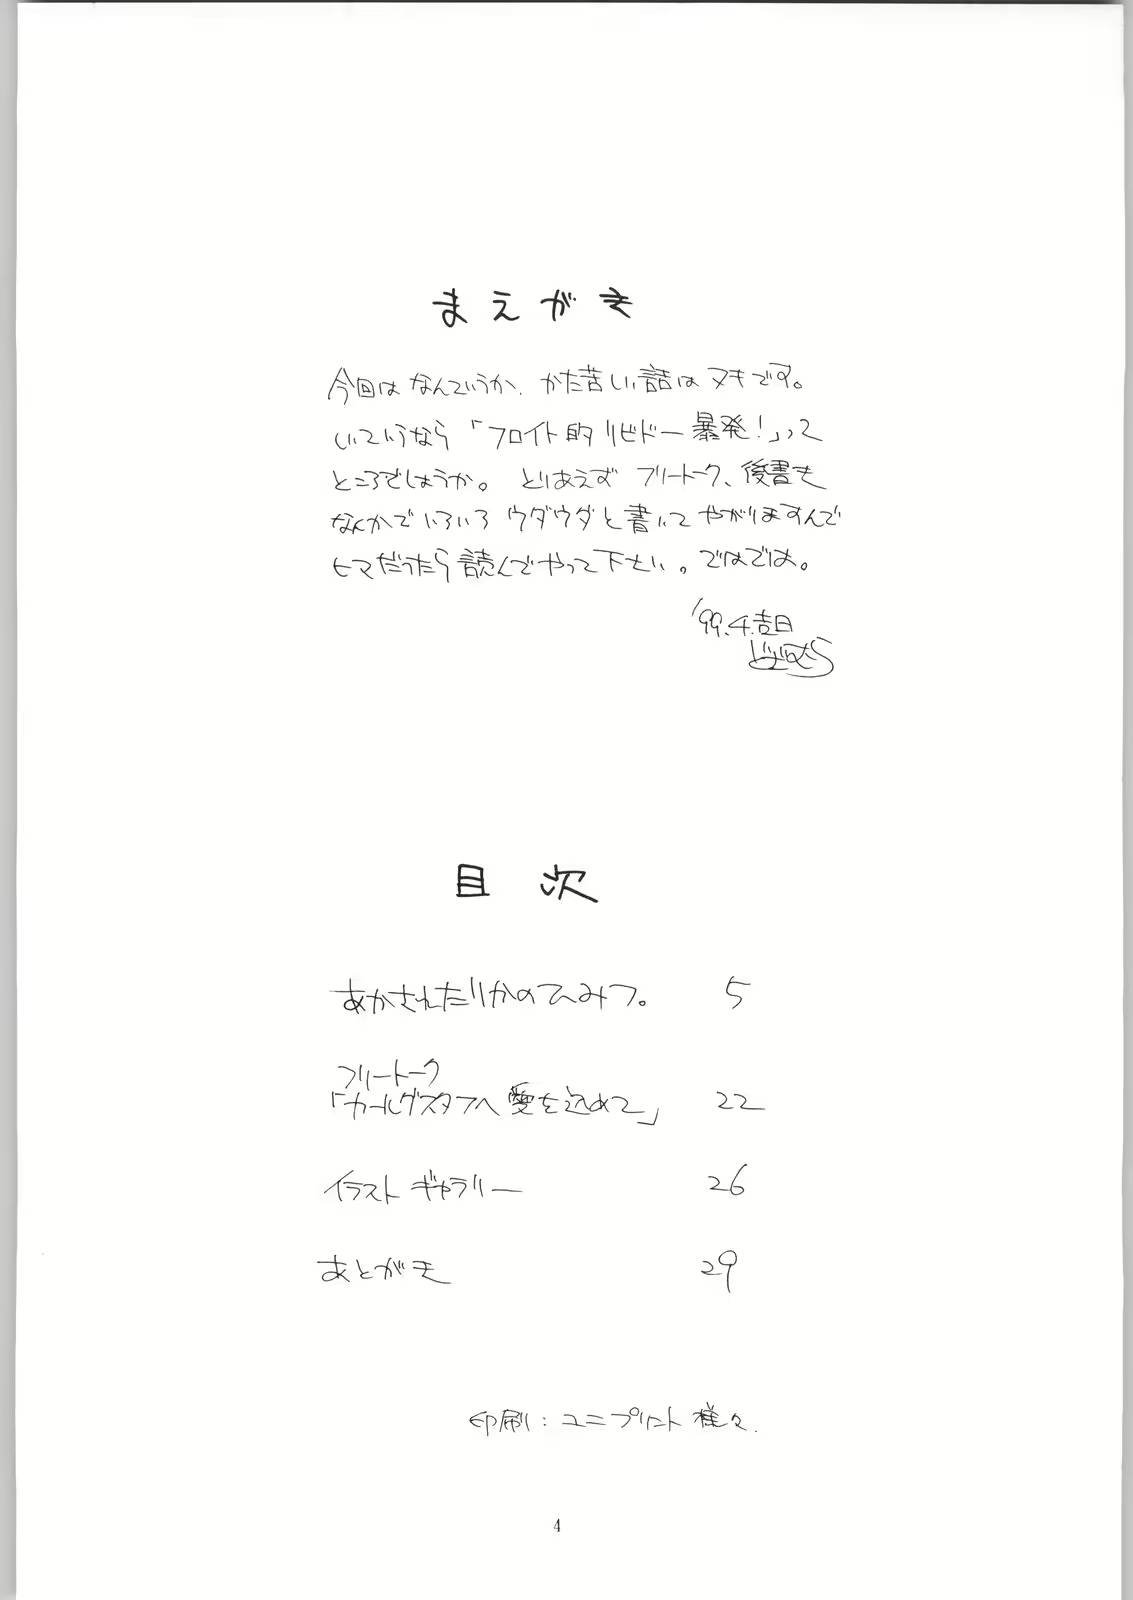 まえがき
今回はなんていうか、かた苦しい話はヌキです。
いっていうなら「フロイト的リビドー暴発！」って
ところでしょうか。とりあえずフリートーク、後書き
なんかでいろいろウダウダと書いてやがりますんで
ヒマだったら読んでやって下さい。ではでは。
'99.4.吉日
目次
あかされたりかのひみつ。 5
フリートーク
「カールグスタフへ愛を込めて」 22
イラストギャラリー 26
あとがき 29
印刷：ユニプリント様々.
4